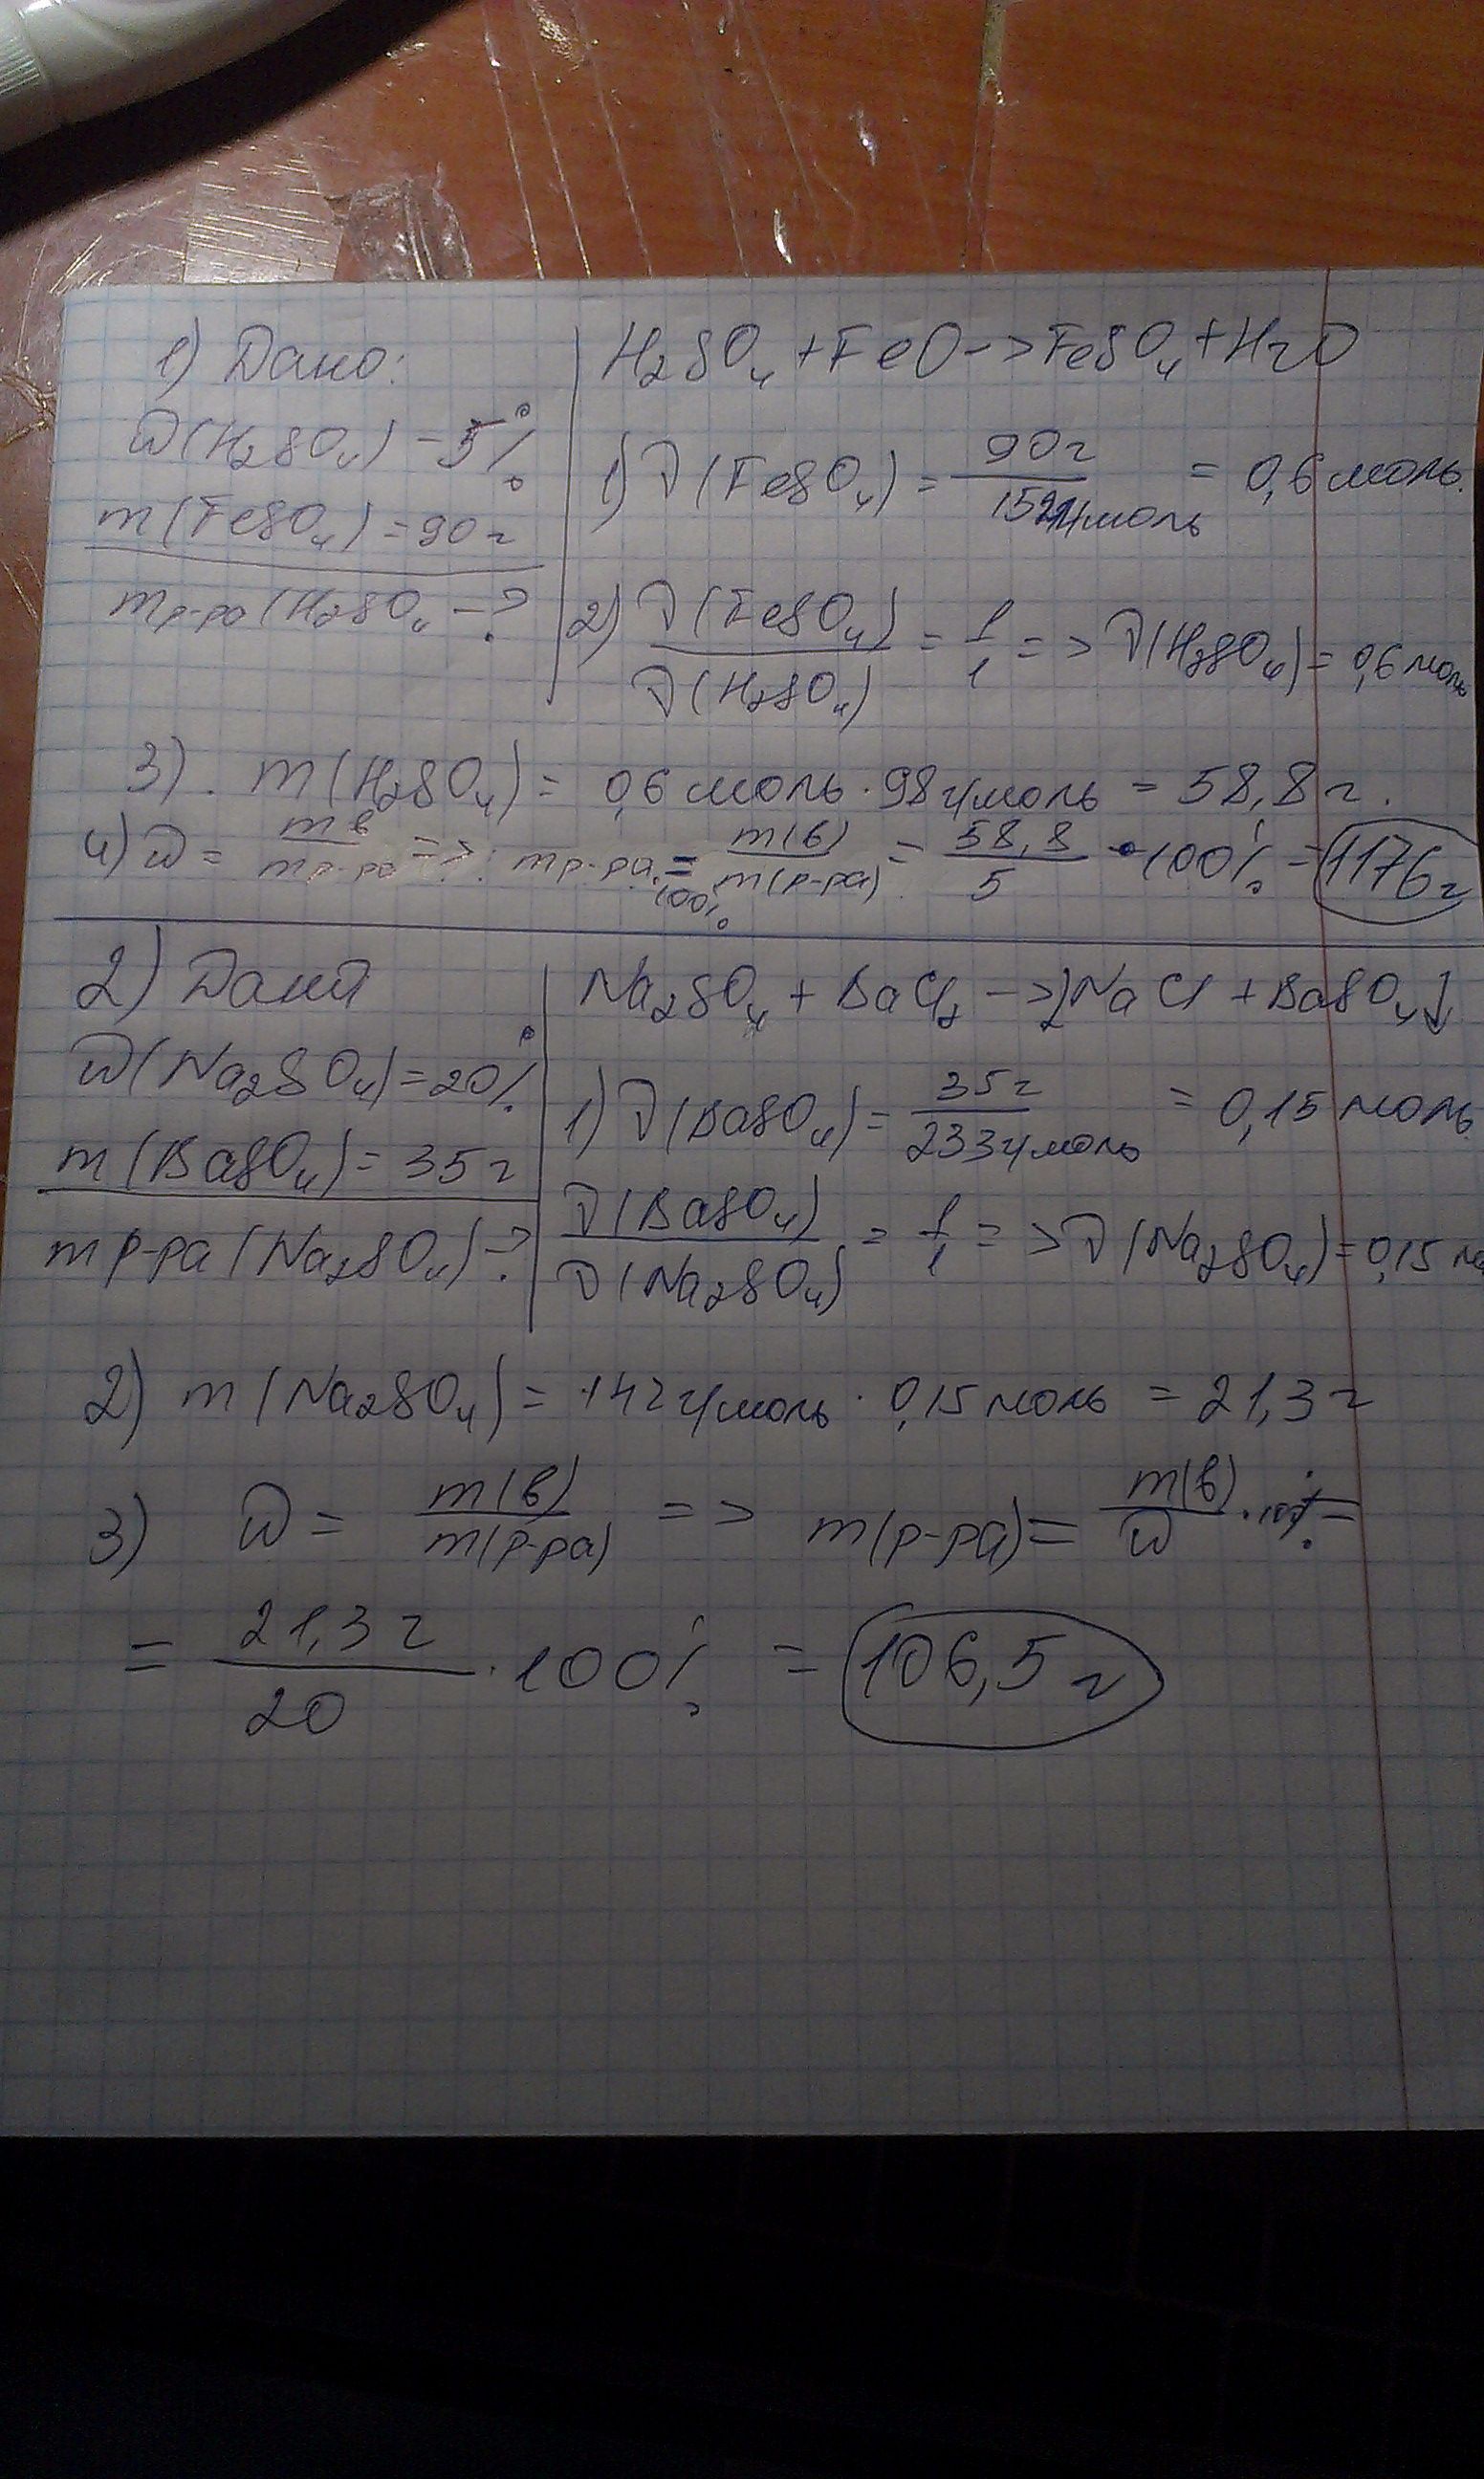 1) Дано:
W(H₂SO₄) - 5%
m(FeSO₄) = 90г
mр-ра(H₂SO₄ - ?
H₂SO₄ + FeO -> FeSO₄ + H₂O
1) ν(FeSO₄) = 90г / 152г/моль = 0,6 моль.
2) ν(FeSO₄) / ν(H₂SO₄) = 1/1 => ν(H₂SO₄) = 0,6 моль
3). m(H₂SO₄) = 0,6 моль · 98г/моль = 58,8г.
4) W = mв / mр-ра => mр-ра = m(в) / m(р-ра) 100% = 58,8 / 5 · 100% = 1176г
2) Дано
W(Na₂SO₄) = 20%
m(BaSO₄) = 35г
mр-ра(Na₂SO₄) - ?
Na₂SO₄ + BaCl₂ -> 2NaCl + BaSO₄↓
1) ν(BaSO₄) = 35г / 233г/моль = 0,15 моль
ν(BaSO₄) / ν(Na₂SO₄) = 1/1 => ν(Na₂SO₄) = 0,15 мо
2) m(Na₂SO₄) = 142г/моль · 0,15 моль = 21,3г
3) W = m(в) / m(р-ра) => m(р-ра) = m(в) / W · =
= 21,3г / 20 · 100% = 106,5г